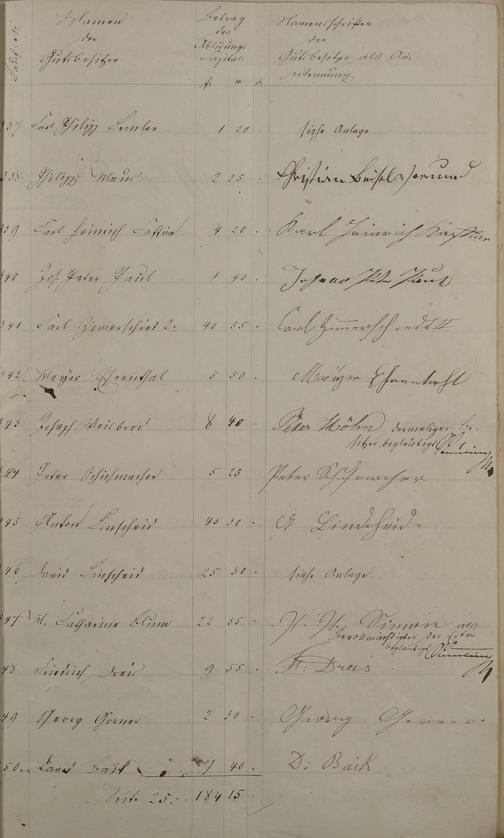 Namen
der
Gutsbesitzer
Betrag
des
Ablösungs
Capitals
Namensschriften
der
Gutsbesitzer als An
erkennung
337 Carl Philipp 1 20 siehe Anlage
338 Philipp Maus 2 25 Christian
339 Carl Heinrich 4 20 Karl Heinrich
340 Joh: Peter Paul 1 40 Johann Peter Paul
341 Carl Zimmerschied 2: 40 55 Carl Zimmerschied II
342 Mayer Ehrenthal 5 50 Mayer Ehrenthal
343 Joseph Weilbrod 8 40 Peter Höhn dermaliger Be
sitzer beglaubigt
344 Peter Schuhmacher 5 25 Peter Schuhmacher
345 Anton Linscheid 45 30 A Lindscheid
346 David Linscheid 25 30 siehe Anlage
347 Catharine Blum 22 35 Simon als
bevollmächtigter der
beglaubigt
348 Friedrich Dreis 9 55 Fr: Dreis
349 Georg 2 30 Georg
350 David Bäck 7 40 D: Bäck
Seite 25: 184 15